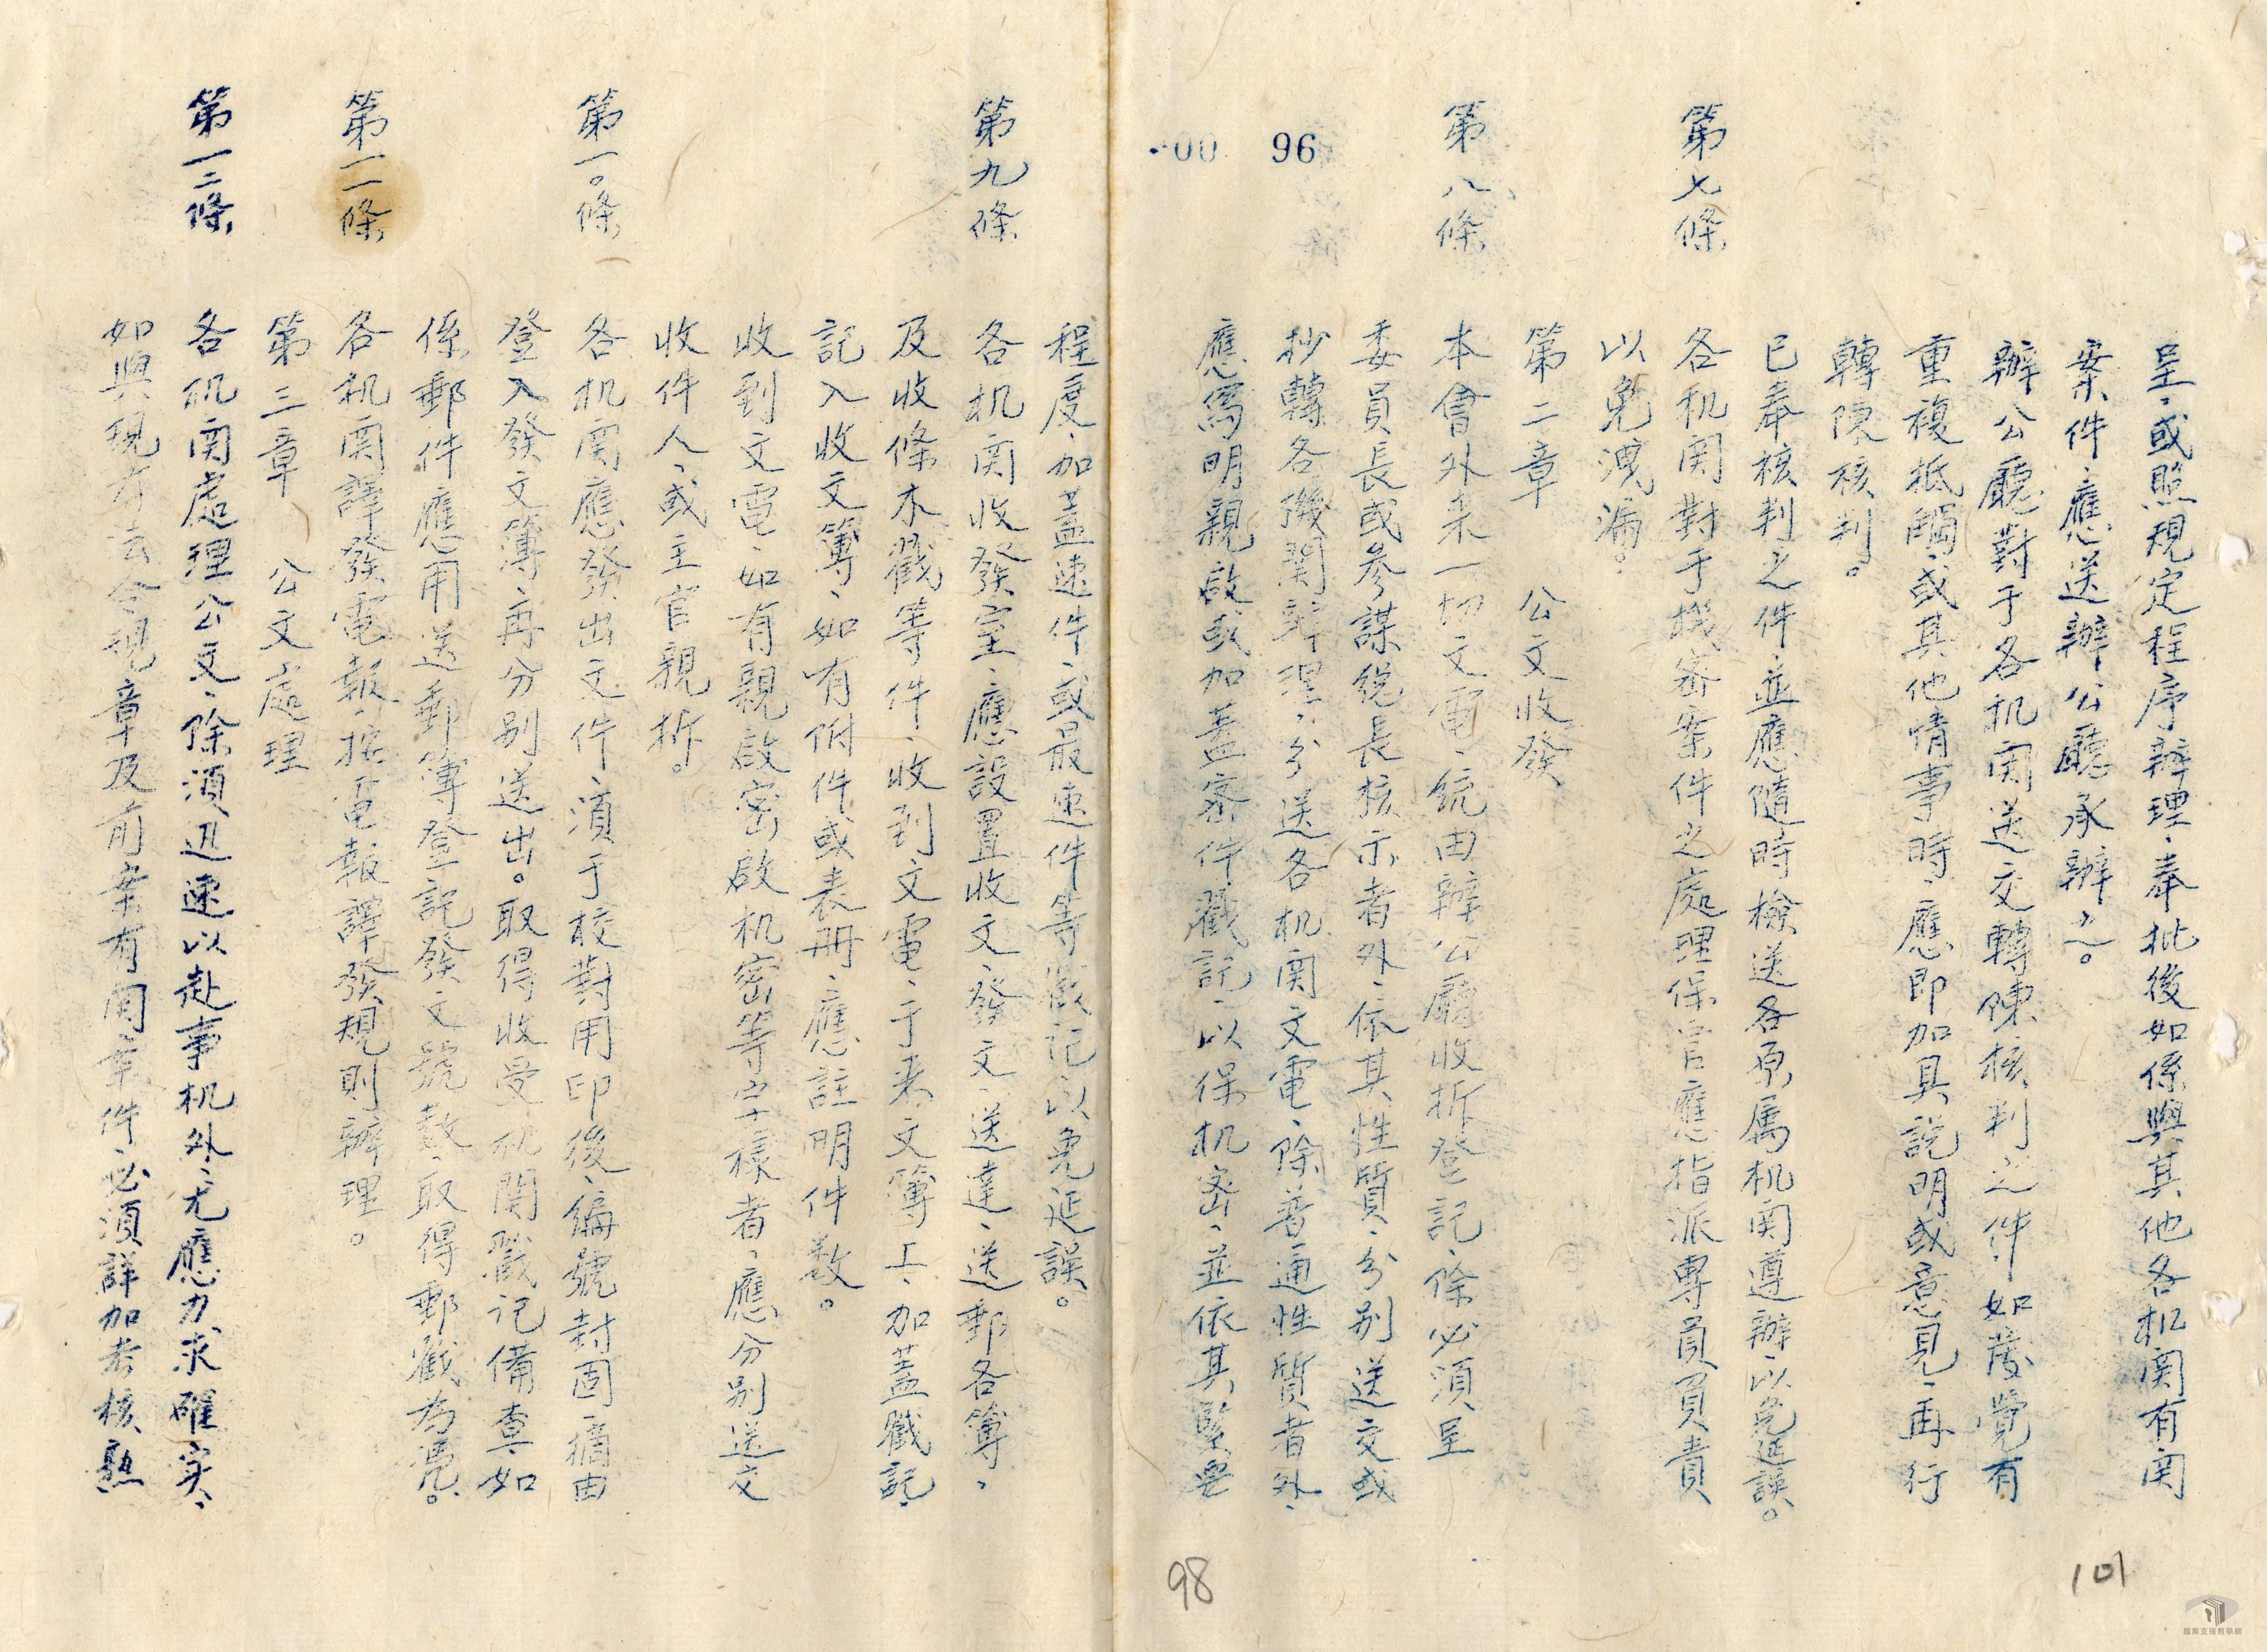 呈、或照規定程序辦理、奉批後如係與其他各机関有関
案件、應送辦公廳承辦之。
辦公廳對于各机関送交轉陳核判之件、如發覺有
重複抵觸、或其他情事時、應即加具説明或意見、再行
轉陳核判。
已奉核判之件、並應隨時檢送各原属机関遵辦、以免延誤。
第七條 各机関對于機密案件之處理保管應指派專員負責
以免洩漏。
第二章 公文收發
第八條 本會外来一切文電、統由辦公廳收拆登記、除必須呈
委員長或参謀總長核示者外、依其性質、分别送交或
抄轉各機関辦理、分送各机関文電、除普通性質者外、
應寫明親啟或加蓋密件戳記、以保机密、並依其緊要
00 96
程度、加蓋速件、或最速件等戳记以免延誤。
第九條 各机関收發室、應設置收文、發文、送達、送郵各簿、
及收條木戳等件、收到文電、于来文簿上、加蓋戳記、
記入收文簿、如有附件或表册、應註明件数。
收到文電、如有親啟密啟机密等字樣者、應分别送交
收件人、或主官親拆。
第一〇條 各机関應發出文件、須于校對用印後、編號封固摘由
登入發文簿、再分别送出。取得收受机関戳记備查、如
係郵件應用送郵簿登記發文號数、取得郵戳為憑。
第一一條 各机関譯發電報、按電報譯發規則辦理。
第三章 公文處理
第一二條 各机関處理公文、除須迅速以赴事机外、尤應力求確实、
如與現有法令規章及前案有関案件、必須詳加考核熟
98
101
檔案支援教學網